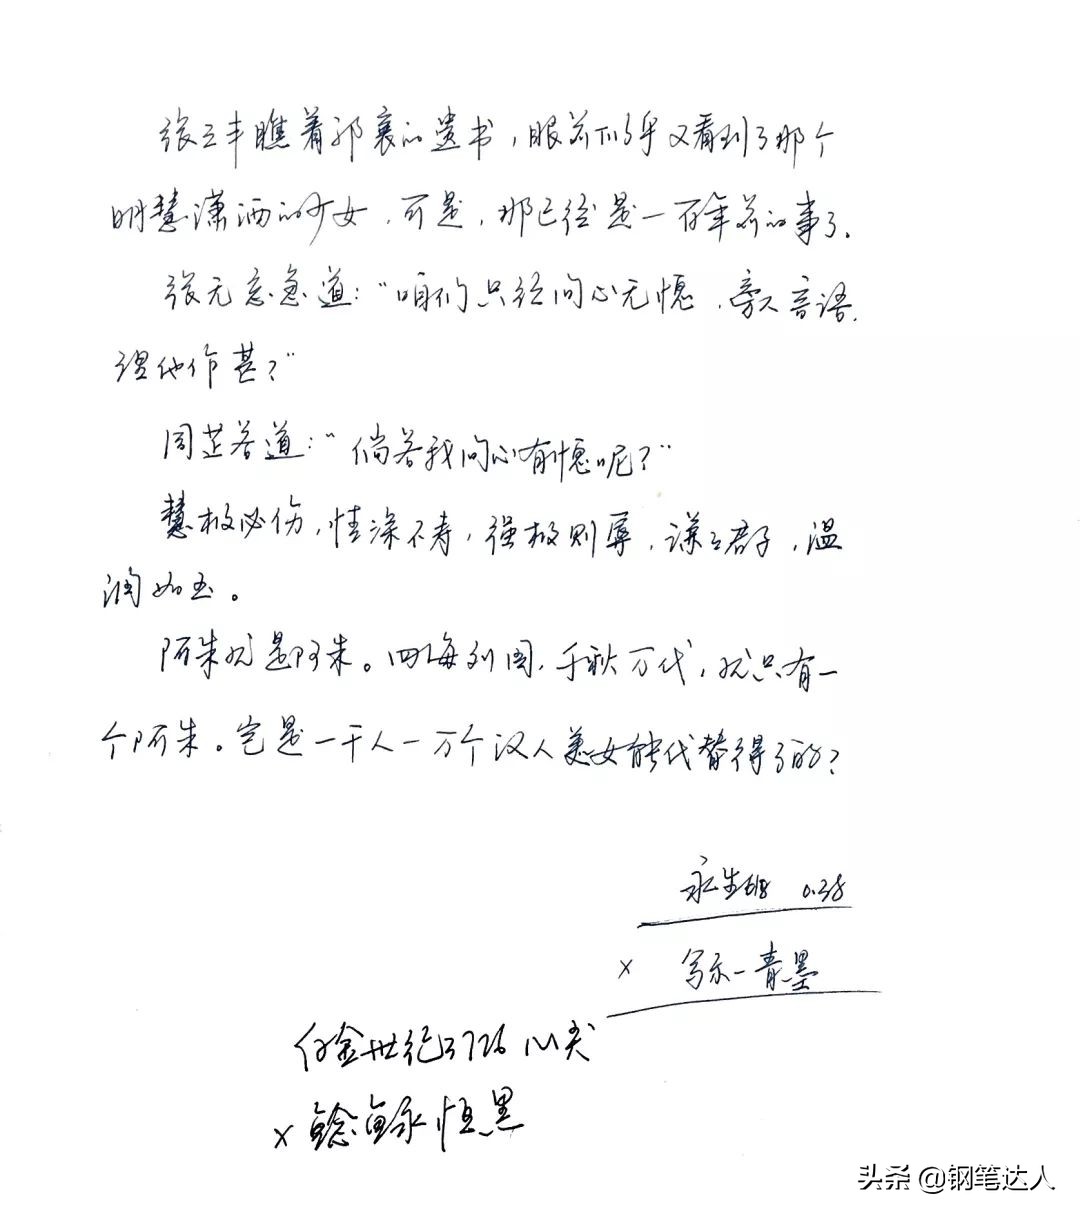 张三丰瞧着郭襄的遗书，眼前似乎又看到了那个
明慧潇洒的少女，可是，那已经是一百年前的事了.
张无忌急道：“咱们只经问心无愧，旁人言语，
理他作甚？”
周芷若道：“倘若我问心有愧呢？”
慧极必伤，情深不寿，强极则辱，谦谦君子，温
润如玉。
阿朱就是阿朱。四海列国，千秋万代，就只有一
个阿朱。岂是一千人一万个汉人美女能代替得了的？
永生618 0.38
× 写乐一青墨
白金世纪3776 M尖
× 鲶鱼永恒黑
头条 @钢笔达人